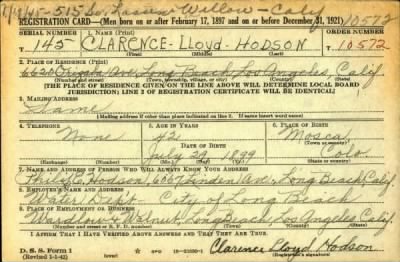 515 So. Lassen Willow - Calif 10572
REGISTRATION CARD—(Men born on or after February 17, 1897 and on or before December 31, 1921)
SERIAL NUMBER 1. NAME (Print) ORDER NUMBER
T 145 CLARENCE - Lloyd - HODSON T 10572
(First) (Middle) (Last)
2. PLACE OF RESIDENCE (Print)
6620 Orizaba Ave Long Beach Los Angeles, Calif
(Number and street) (Town, township, village, or city) (County) (State)
[THE PLACE OF RESIDENCE GIVEN ON THE LINE ABOVE WILL DETERMINE LOCAL BOARD
JURISDICTION; LINE 2 OF REGISTRATION CERTIFICATE WILL BE IDENTICAL]
3. MAILING ADDRESS
Same
[Mailing address if other than place indicated on line 2. If same insert word same]
4. TELEPHONE 5. AGE IN YEARS 6. PLACE OF BIRTH
None 42 Mosca
DATE OF BIRTH (Town or county)
July 29, 1899 Colo.
(Exchange) (Number) (Mo.) (Day) (Yr.) (State or country)
7. NAME AND ADDRESS OF PERSON WHO WILL ALWAYS KNOW YOUR ADDRESS
Hodson, 6067 Linden Ave, Long Beach, Calif
8. EMPLOYER'S NAME AND ADDRESS
Water Dept - City of Long Beach
9. PLACE OF EMPLOYMENT OR BUSINESS
Wardlow & Walnut, Long Beach, Los Angeles, Calif
(Number and street or R. F. D. number) (Town) (County) (State)
I AFFIRM THAT I HAVE VERIFIED ABOVE ANSWERS AND THAT THEY ARE TRUE.
D. S. S. Form 1
(Revised 1-1-42) (over) Clarence Lloyd Hodson
(Registrant's signature)